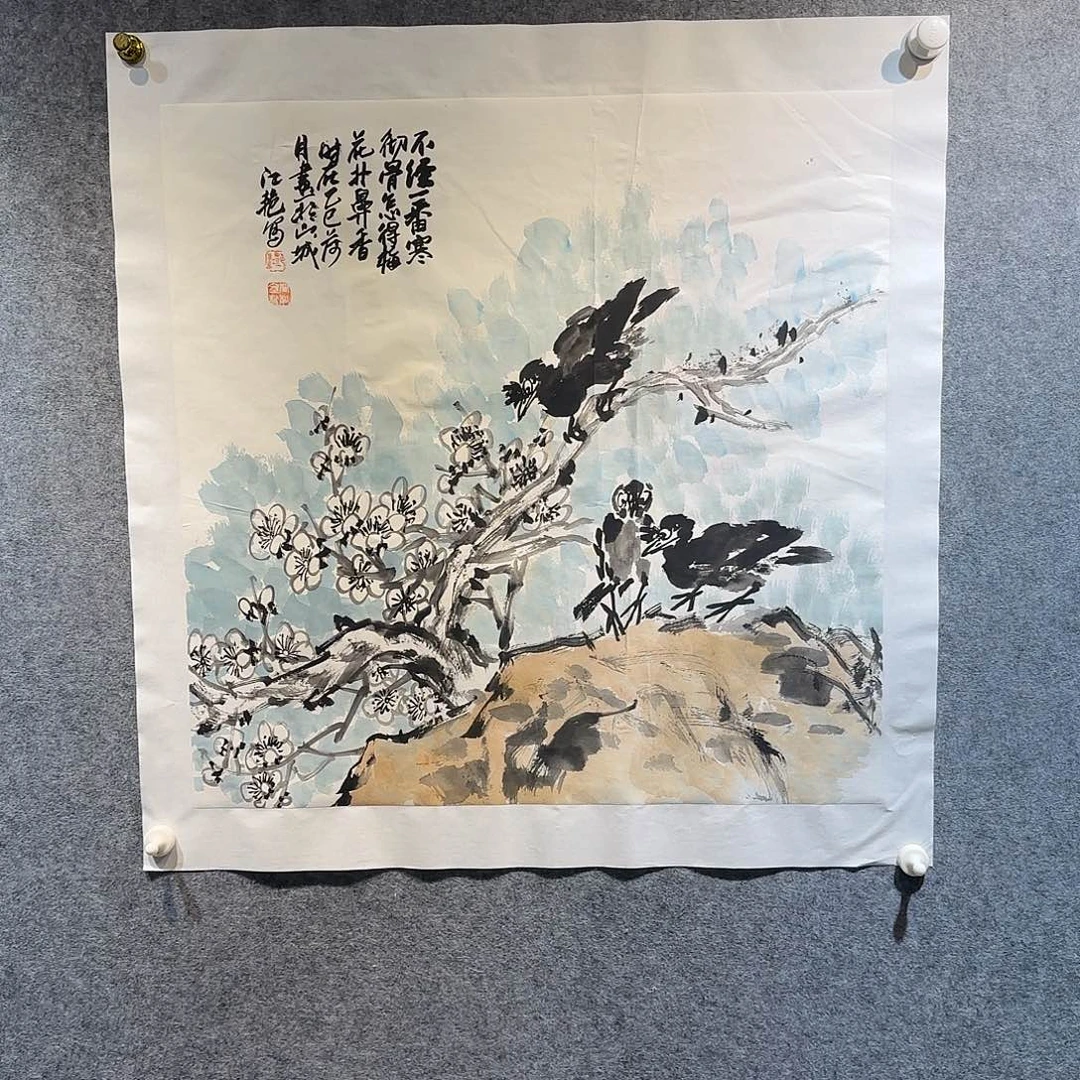 不经一番寒
彻骨怎得梅
花扑鼻香
时在乙巳荷
月画于山城
江艳写